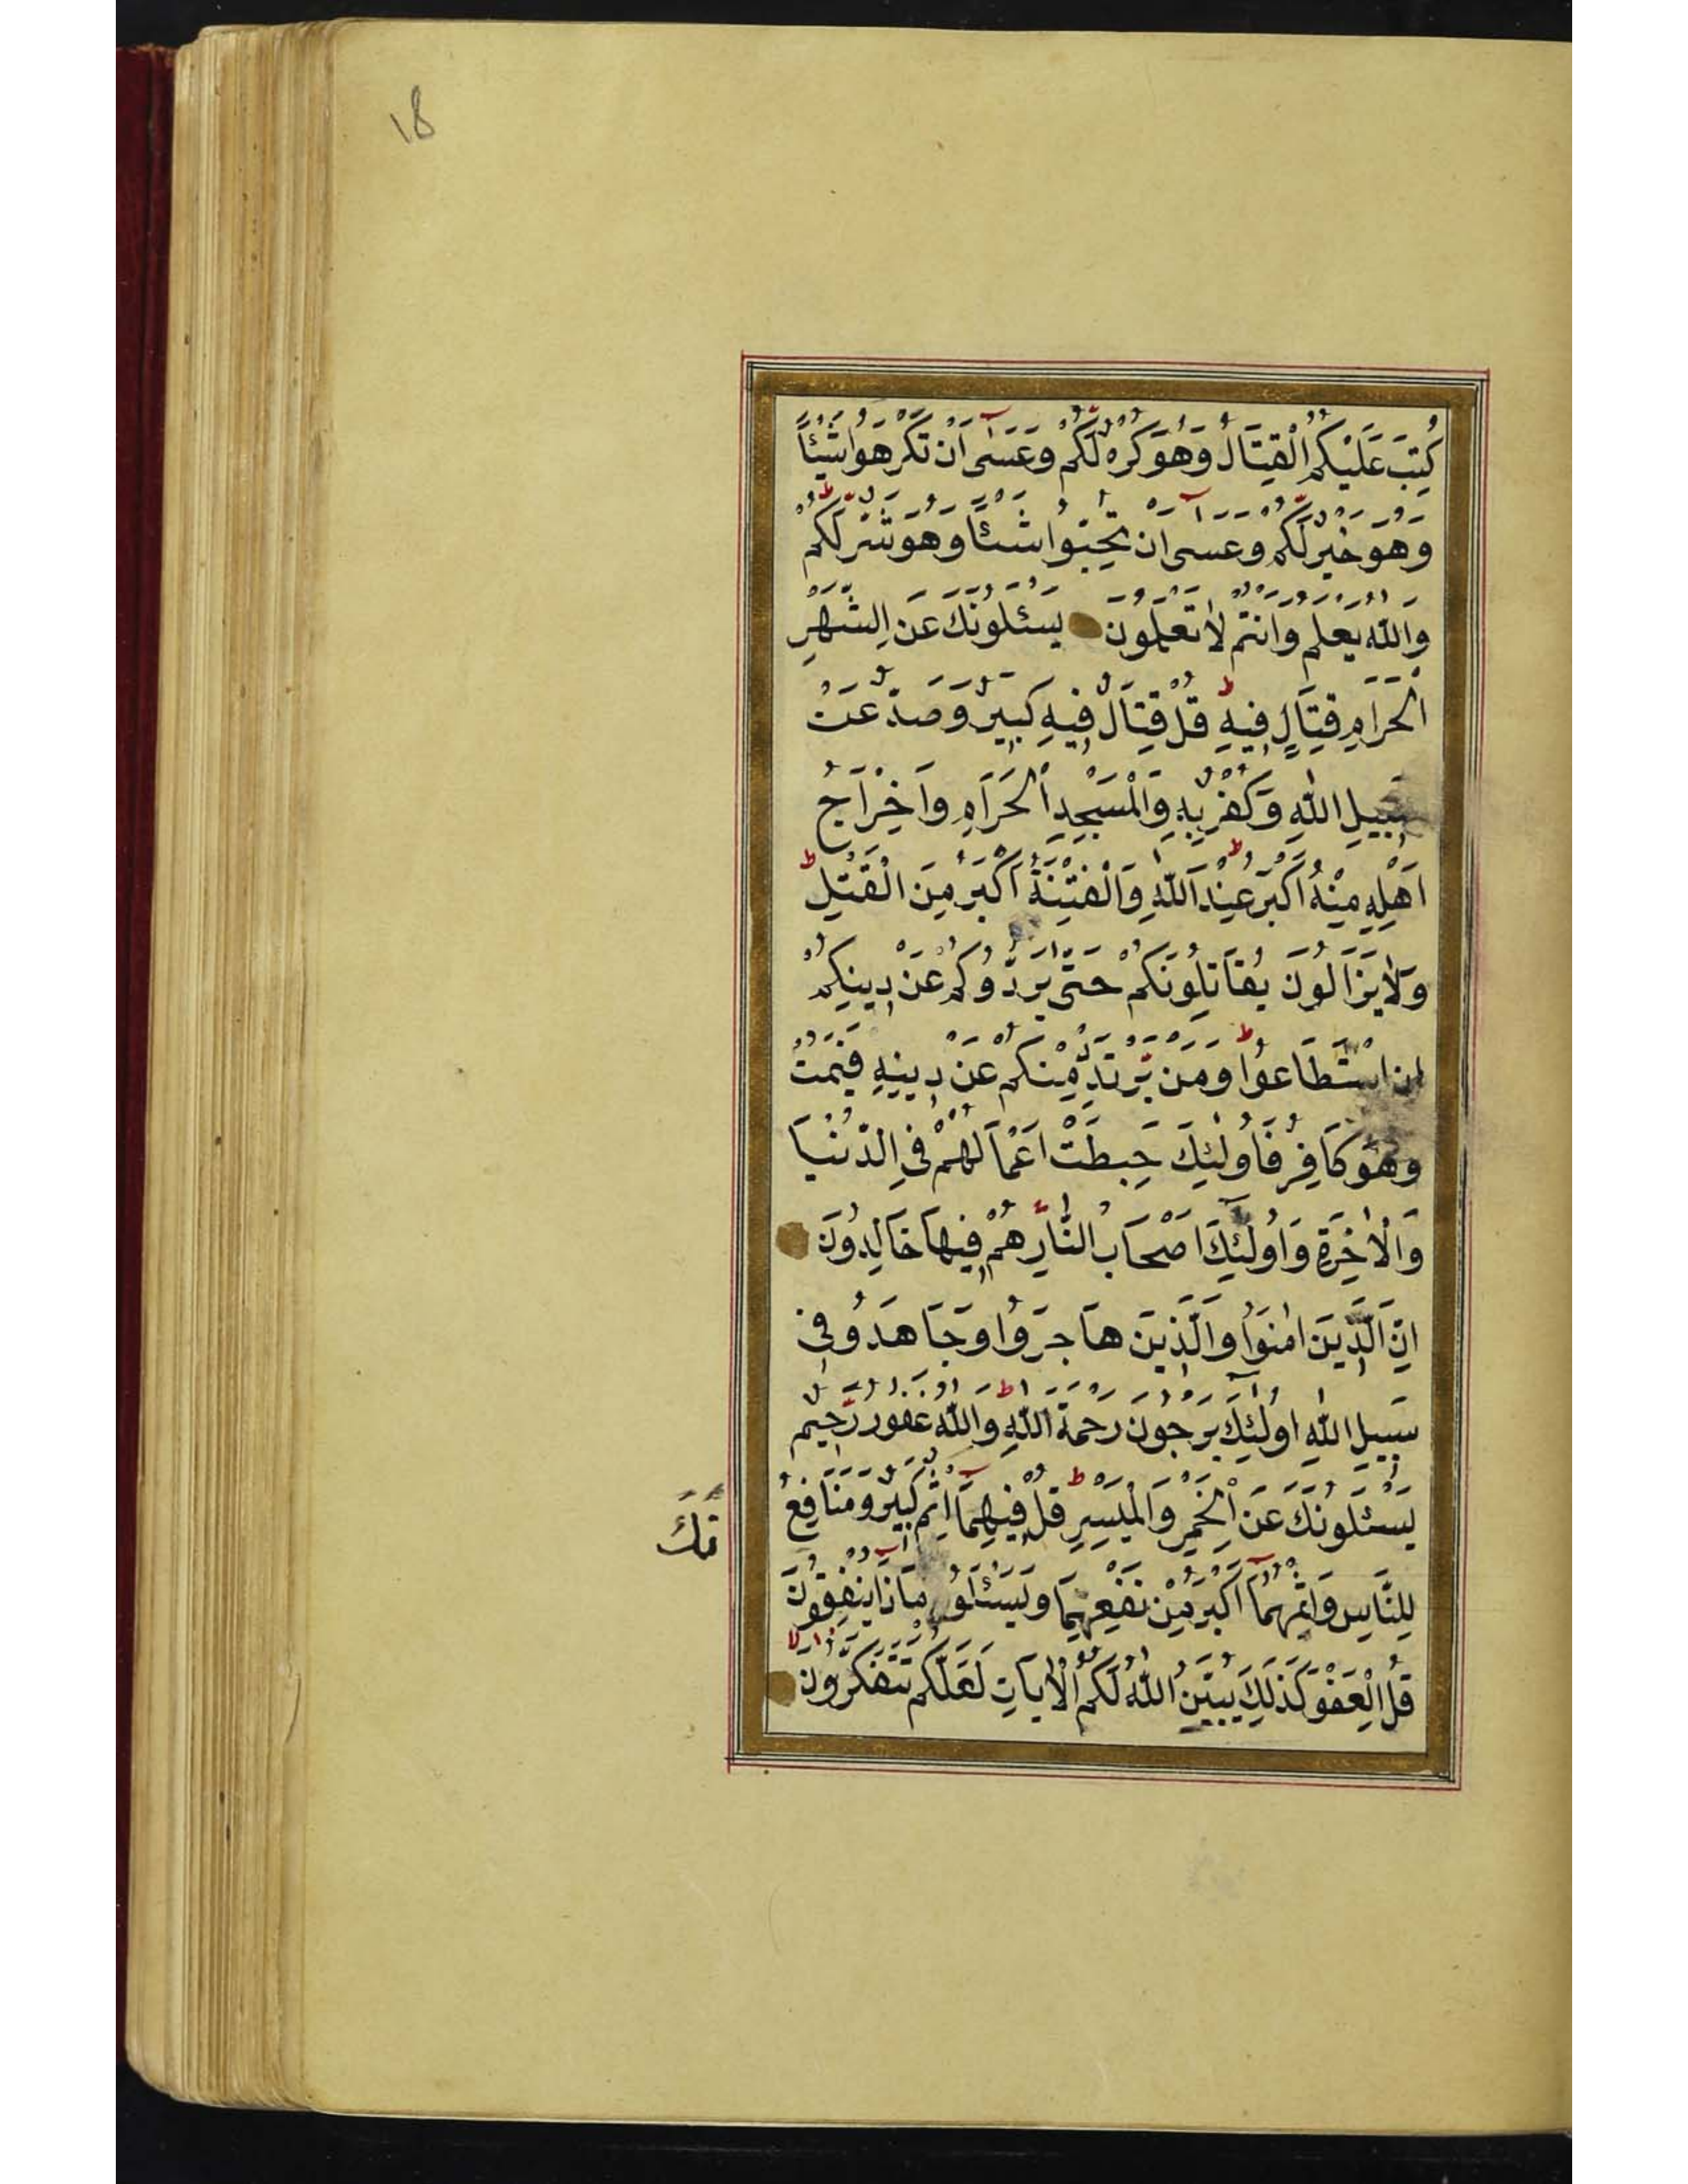 18
كُتِبَ عَلَيْكُمُ الْقِتَالُ وَهُوَ كُرْهٌ لَّكُمْ وَعَسَىٰٓ اَنْ تَكْرَهُوا شَيْئًا
وَهُوَ خَيْرٌ لَّكُمْ وَعَسَىٰٓ اَنْ تُحِبُّوا شَيْئًا وَهُوَ شَرٌّ لَّكُمْ
وَاللّٰهُ يَعْلَمُ وَاَنْتُمْ لَا تَعْلَمُونَ يَسْئَلُونَكَ عَنِ الشَّهْرِ
الْحَرَامِ قِتَالٍ فِيهِ قُلْ قِتَالٌ فِيهِ كَبِيرٌ وَصَدٌّ عَنْ
سَبِيلِ اللّٰهِ وَكُفْرٌ بِهِ وَالْمَسْجِدِ الْحَرَامِ وَاِخْرَاجُ
اَهْلِهِ مِنْهُ اَكْبَرُ عِنْدَ اللّٰهِ وَالْفِتْنَةُ اَكْبَرُ مِنَ الْقَتْلِ
وَلَا يَزَالُونَ يُقَاتِلُونَكُمْ حَتّٰى يَرُدُّوكُمْ عَنْ دِينِكُمْ
اِنِ اسْتَطَاعُوا وَمَنْ يَّرْتَدِدْ مِنْكُمْ عَنْ دِينِهِ فَيَمُتْ
وَهُوَ كَافِرٌ فَاُولٰئِكَ حَبِطَتْ اَعْمَالُهُمْ فِي الدُّنْيَا
وَالْاٰخِرَةِ وَاُولٰٓئِكَ اَصْحَابُ النَّارِ هُمْ فِيهَا خَالِدُونَ
اِنَّ الَّذِينَ اٰمَنُوا وَالَّذِينَ هَاجَرُوا وَجَاهَدُوا فِي
سَبِيلِ اللّٰهِ اُولٰٓئِكَ يَرْجُونَ رَحْمَةَ اللّٰهِ وَاللّٰهُ غَفُورٌ رَّحِيمٌ
يَسْئَلُونَكَ عَنِ الْخَمْرِ وَالْمَيْسِرِ قُلْ فِيهِمَآ اِثْمٌ كَبِيرٌ وَمَنَافِعُ
لِلنَّاسِ وَاِثْمُهُمَآ اَكْبَرُ مِنْ نَفْعِهِمَا وَيَسْئَلُونَكَ مَاذَا يُنْفِقُونَ
قُلِ الْعَفْوَ كَذٰلِكَ يُبَيِّنُ اللّٰهُ لَكُمُ الْاٰيَاتِ لَعَلَّكُمْ تَتَفَكَّرُونَ